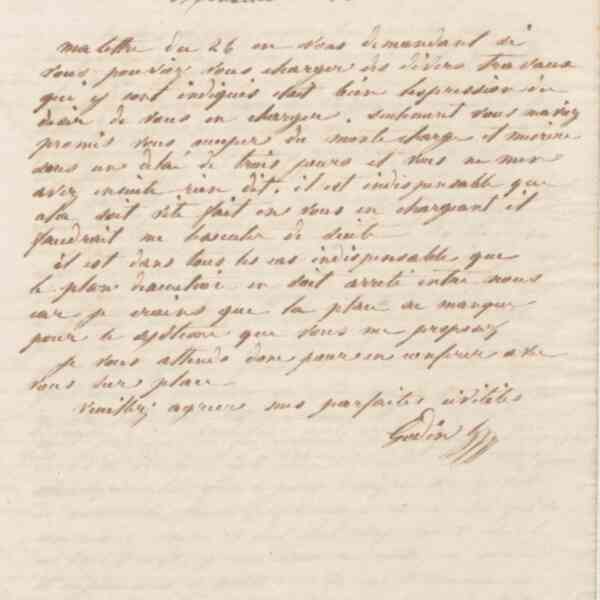 ma lettre du 26 en vous demandant si
vous pouviez vous charger des divers travaux
qui y sont indiqués était bien l'expression du
désir de vous en charger. seulement vous m'aviez
promis vous occuper du monte charge et
sous un délai de trois jours et vous ne m'en
avez ensuite rien dit. il est indispensable que
cela soit vite fait en vous en chargeant il
faudrait me de suite
il est dans tous les cas indispensable que
le plan d'exécution en soit arrêté entre nous
car je crains que la place ne manque
pour le système que vous me proposez
je vous attends donc pour en conférer avec
vous sur place
veuillez agréer mes parfaites civilités
Godin